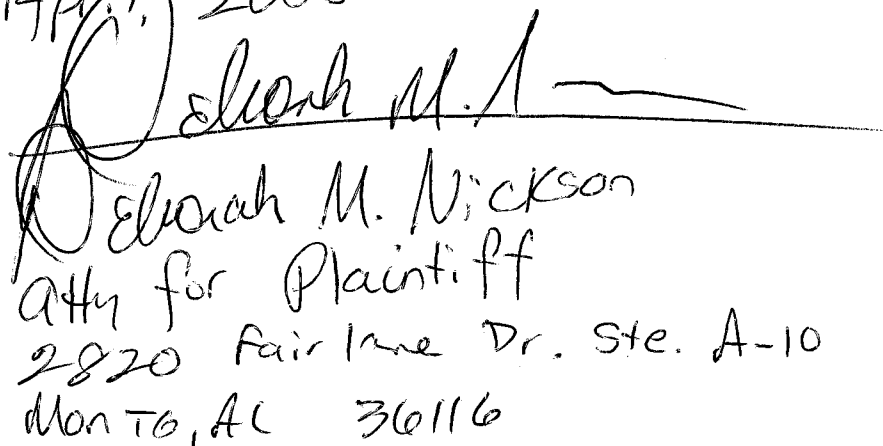 April, 200
Deborah M. N
Deborah M. Nickson
atty for Plaintiff
2820 Fairlane Dr. Ste. A-10
Mon TG, AL 36116